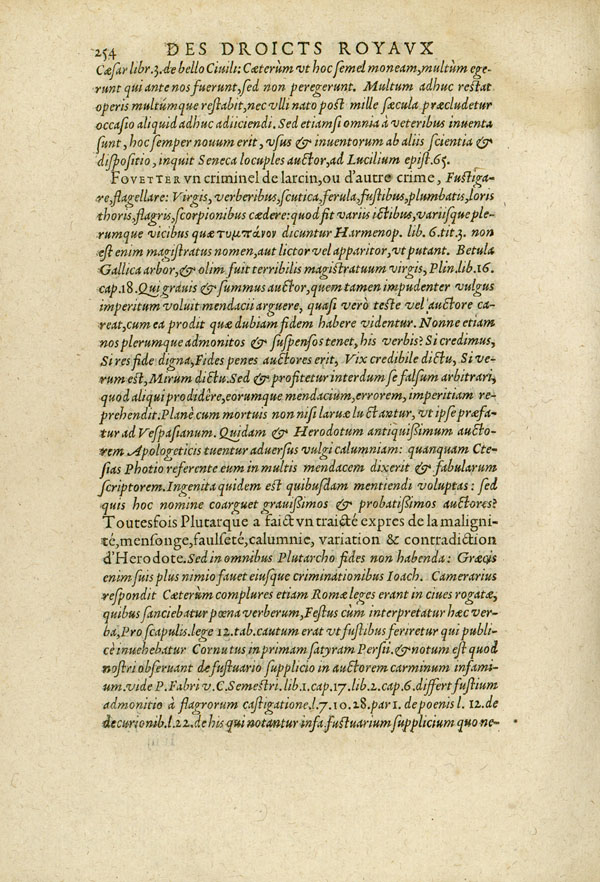 254 DES DROICTS ROYAVX
Cæsar libr.3. de bello Ciuili: Cæterùm vt hoc semel moneam, multùm ege-
runt qui ante nos fuerunt, sed non peregerunt. Multum adhuc restat
operis multúmque restabit, nec vlli nato post mille sæcula præcludetur
occasio aliquid adhuc adiiciendi. Sed etiamsi omnia à veteribus inuenta
sunt, hoc semper nouum erit, vsus & inuentorum ab aliis scientia &
dispositio, inquit Seneca locuples auctor, ad Lucilium epist. 65.
FOVETTER vn criminel de larcin, ou d'autre crime, Fustiga-
re, flagellare: Virgis, verberibus, scutica, ferula, fustibus, plumbatis, loris
thoris, flagris, scorpionibus cædere: quod fit variis ictibus, variisque ple-
rumque vicibus quæ τυμπάνον dicuntur Harmenop. lib. 6. tit. 3. non
est enim magistratus nomen, aut lictor vel apparitor, vt putant. Betula
Gallica arbor, & olim fuit terribilis magistratuum virgis, Plin. lib. 16.
cap. 18. Qui grauis & summus auctor, quem tamen impudenter vulgus
imperitum voluit mendacii arguere, quasi verò teste vel auctore ca-
reat, cum ea prodit quæ dubiam fidem habere videntur. Nonne etiam
nos plerumque admonitos & suspensos tenet, his verbis? Si credimus,
Si res fide digna, Fides penes auctores erit, Vix credibile dictu, Si ve-
rum est, Mirum dictu. Sed & profitetur interdum se falsum arbitrari,
quod aliqui prodidêre, eorumque mendacium, errorem, imperitiam re-
prehendit. Planè cum mortuis non nisi laruæ luctantur, vt ipse præfa-
tur ad Vespasianum. Quidam & Herodotum antiquissimum aucto-
rem Apologeticis tuentur aduersus vulgi calumniam: quanquam Cte-
sias Photio referente eum in multis mendacem dixerit & fabularum
scriptorem. Ingenita quidem est quibusdam mentiendi voluptas: sed
quis hoc nomine coarguet grauissimos & probatissimos auctores?
Toutesfois Plutarque a faict vn traicté expres de la maligni-
té, mensonge, faulseté, calumnie, variation & contradiction
d'Herodote. Sed in omnibus Plutarcho fides non habenda: Græcis
enim suis plus nimio fauet eiusque criminationibus Ioach. Camerarius
respondit Cæterùm complures etiam Romæ leges erant in ciues rogatæ,
quibus sanciebatur pœna verberum, Festus cùm interpretatur hæc ver-
ba, Pro scapulis. lege 12. tab. cautum erat vt fustibus feriretur qui publi-
cè inuehebatur Cornutus in primam satyram Persii, & notum est quod
nostri obseruant de fustuario supplicio in auctorem carminum infami-
um. vide P. Fabri v. C. Semestri. lib. 1. cap. 17. lib. 2. cap. 6. differt fustium
admonitio à flagrorum castigatione, l. 7. 10. 28. par 1. de poenis l. 12. de
decurionib. l. 22. de his qui notantur infa. fustuarium supplicium quo ne-